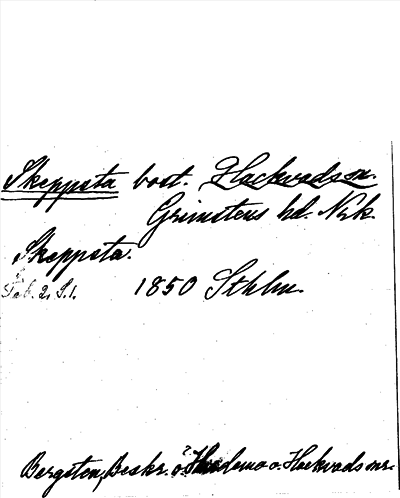 Skeppsta bost. Hackvads sn.
Grimstens hd. Nrk.
Skeppsta.
Tab. 2, S. 1. 1850 Sthlm.
Bergsten, Beskr. o. Hardemo o. Hackvads snr.